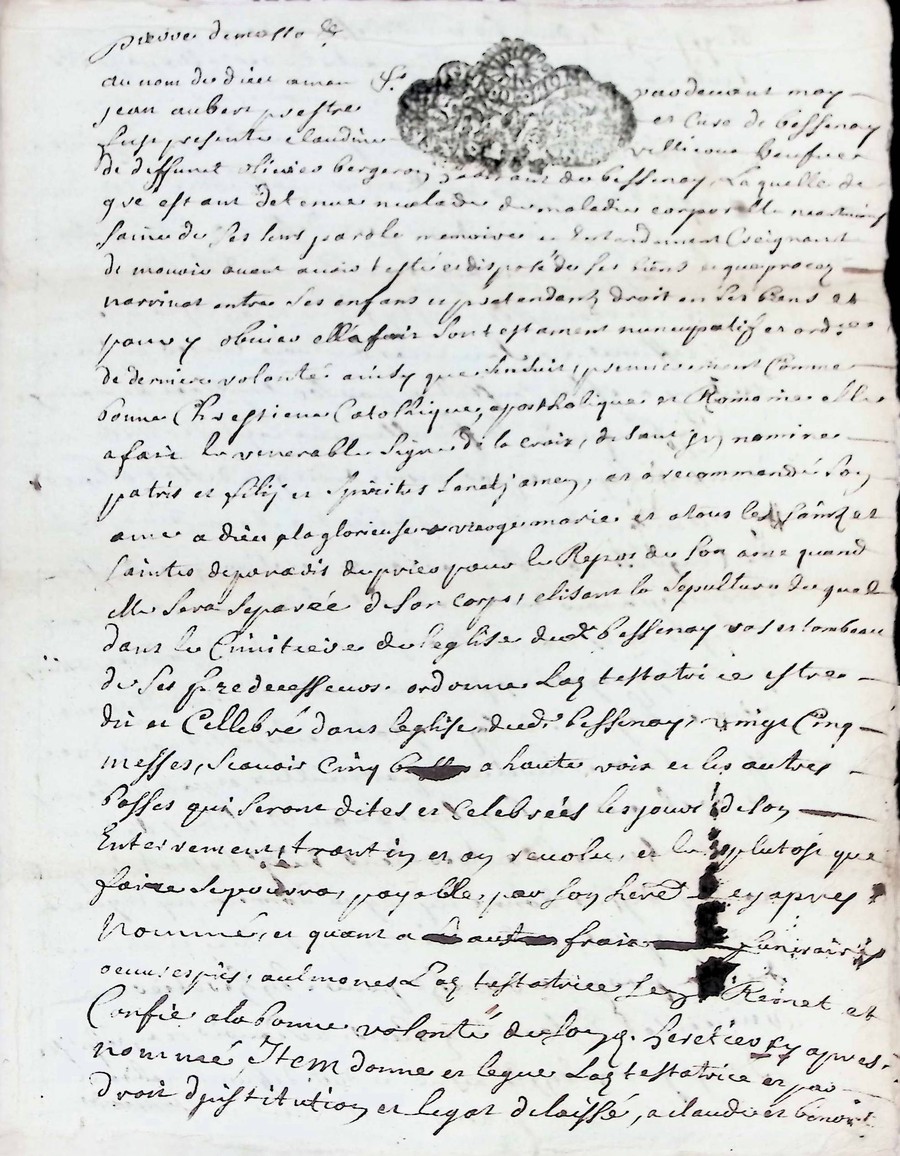 au nom de dieu amen pardevant moy
jean aubert prestre et curé de bessenay
fust presente claudine veufue
de deffunct olivier bergeron de bessenay, Laquelle de
gré estant detenue malade de maladie corporelle
saine de ses sens parole memoire et Entendement Creignant
de mourir avant avoir testé et disposé de ses biens et que procez
entre ses enfans et pretendantz droit en ses biens et
pour y obvier ella fait son testament nuncupatif et
de derniere volonté ainsy que sensuit, premierement Comme
bonne Chrestiene Catolhique, apostholique et Romaine elle
a fait le venerable signe de la croix, disant jn nomine
patris et filij et spiritus sanctj amen, et a recommandé son
ame a dieu, a la glorieuse vierge marie et a tous les saintz et
saintes de paradis de prier pour le Repos de son ame quand
elle sera separée de son corps, elisant la sepulture du quel
dans le Cimitiere de leglise dud. bessenay vas et tombeau
de ses predecesseurs. ordonne Laq testatrice estre
dit et Cellebré dans leglise dud. bessenay, vingt Cinq
messes, scavoir Cinq a haute voix et les autres
basses qui seront dites et celebrées les jours de son
Enterrement, trantin et an revolu, et le plutost que
faire se pourra, payable par son heret ey apres
Nommé, et quant a frais funeraires
oeuures pies, aulmones Laq testatrice sen Remet et
Confie a la bonne volonté de sond. heretier ey apres
nommé Jtem donne et legue Laq testatrice et par
droit djnstitution et legat delaissé, a claude et benoist